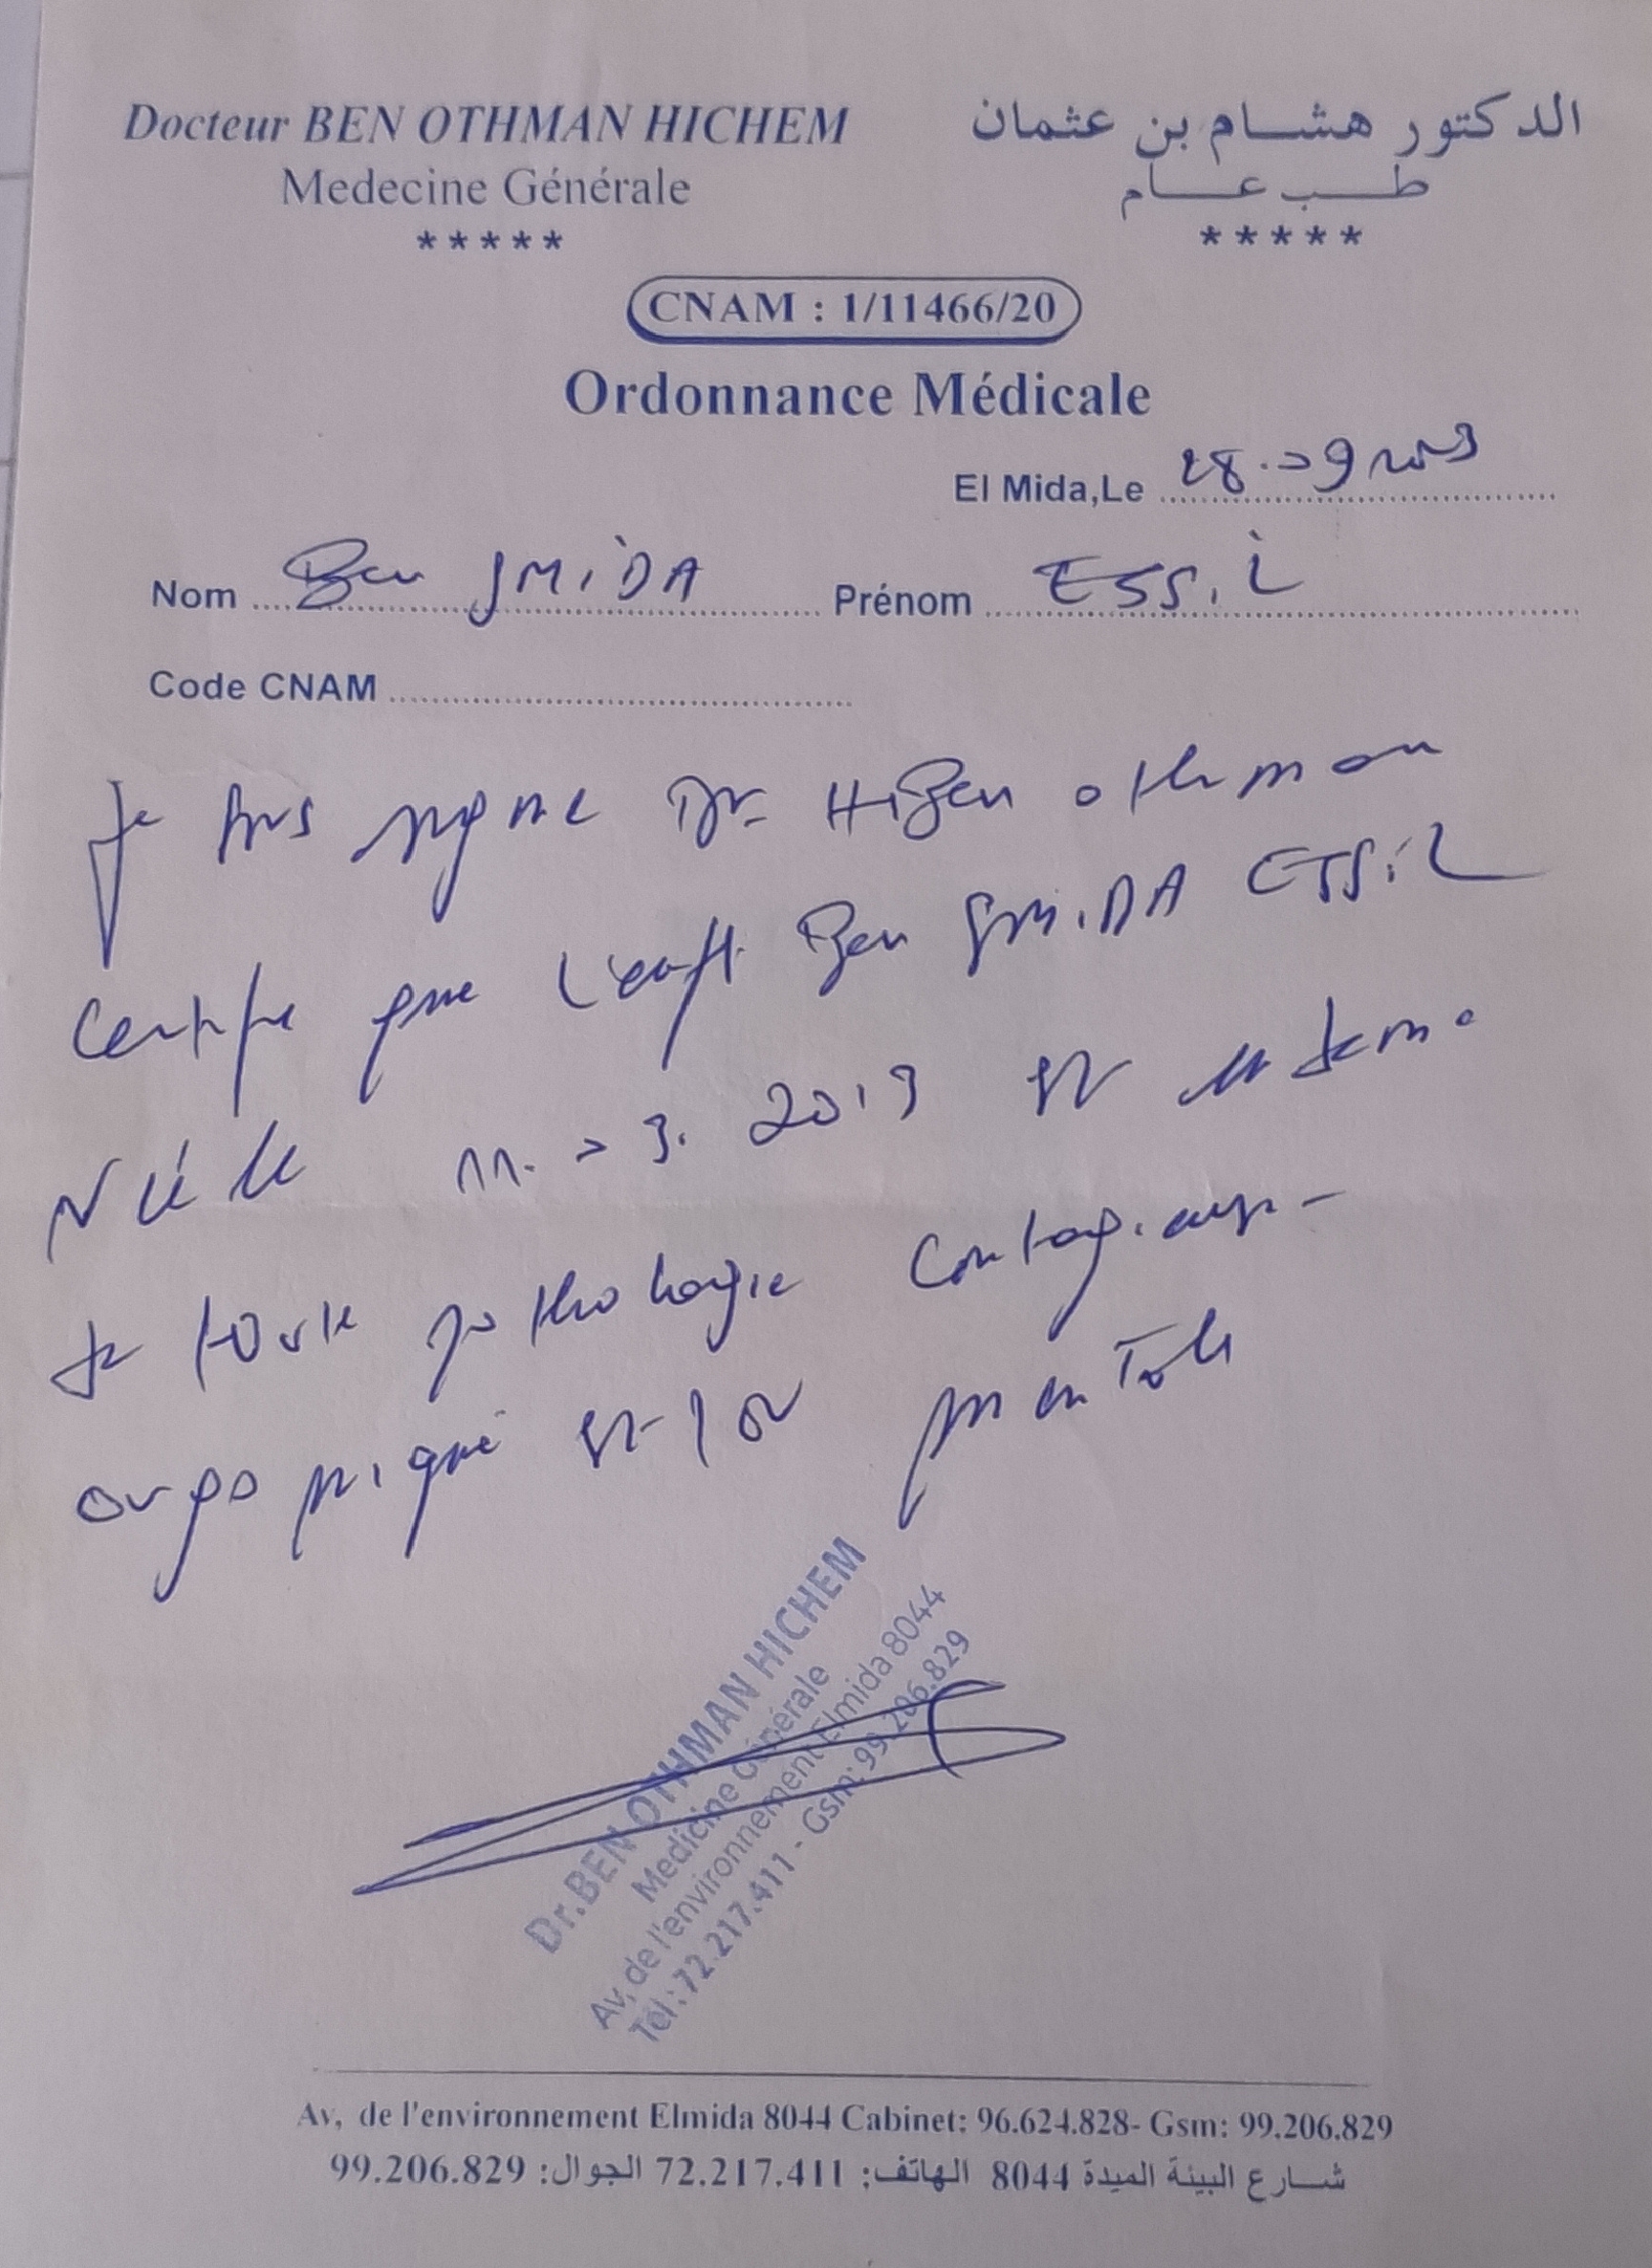 Docteur BEN OTHMAN HICHEM
Medecine Générale
*****
الدكتور هشام بن عثمان
طب عام
*****
CNAM : 1/11466/20
Ordonnance Médicale
El Mida,Le 28.09
Nom Ben SMiDA Prénom ESSiL
Code CNAM
Je signe Dr. H.Ben othman
Certifie que l'enft Ben SMiDA ESSiL
Née le 11.03.2019 est indemne
de toute pathologie contagieuse
organique et/ou mentale
Dr.BEN OTHMAN HICHEM
Medicine Générale
Av, de l'environnement Elmida 8044
Tél : 72.217.411 - Gsm: 99.206.829
Av, de l'environnement Elmida 8044 Cabinet: 96.624.828- Gsm: 99.206.829
شارع البيئة الميدة 8044 الهاتف: 72.217.411 الجوال: 99.206.829